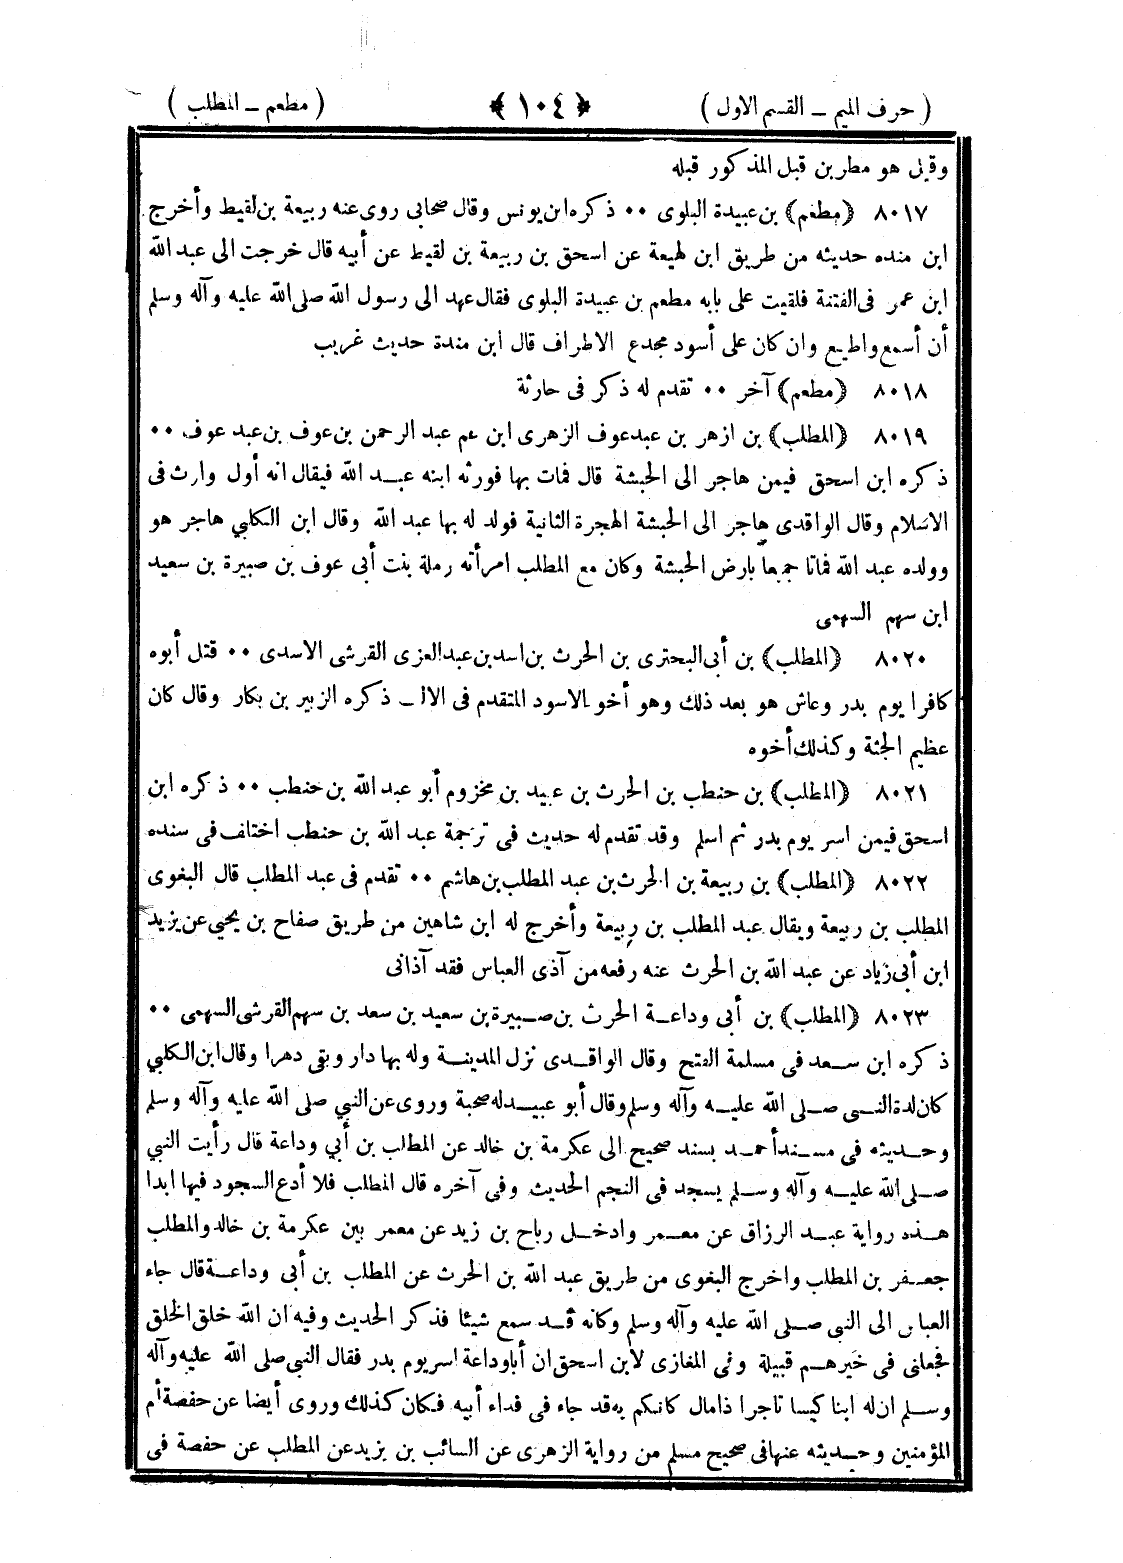 ( حرف الميم ــ القسم الاول )
﴿ ١٠٤ ﴾
( مطعم ــ المطلب )
وقيل هو مطر بن قبل المذكور قبله
٨٠١٧ ﴿مطعم﴾ بن عبيدة البلوى ٠٠ ذكره ابن يونس وقال صحابى روى عنه ربيعة بن لقيط وأخرج
ابن منده حديثه من طريق ابن لهيعة عن اسحق بن ربيعة بن لقيط عن أبيه قال خرجت الى عبد الله
ابن عمر فى الفتنة فلقيت على بابه مطعم بن عبيدة البلوى فقال عهد الى رسول الله صلى الله عليه وآله وسلم
أن أسمع واطيع وان كان على أسود مجدع الاطراف قال ابن مندة حديث غريب
٨٠١٨ ﴿مطعم﴾ آخر ٠٠ تقدم له ذكر فى حارثة
٨٠١٩ ﴿المطلب﴾ بن ازهر بن عبد عوف الزهرى ابن عم عبد الرحمن بن عوف بن عبد عوف ٠٠
ذكره ابن اسحق فيمن هاجر الى الحبشة قال فمات بها فورثه ابنه عبد الله فيقال انه أول وارث فى
الاسلام وقال الواقدى هاجر الى الحبشة الهجرة الثانية فولد له بها عبد الله وقال ابن الكلبي هاجر هو
وولده عبد الله فماتا جميعا بارض الحبشة وكان مع المطلب امرأته رملة بنت أبى عوف بن صبيرة بن سعيد
ابن سهم السهمى
٨٠٢٠ ﴿المطلب﴾ بن أبى البحترى بن الحرث بن اسد بن عبد العزى القرشى الاسدى ٠٠ قتل أبوه
كافرا يوم بدر وعاش هو بعد ذلك وهو أخو الاسود المتقدم فى الالـ ذكره الزبير بن بكار وقال كان
عظيم الجثة وكذلك أخوه
٨٠٢١ ﴿المطلب﴾ بن حنطب بن الحرث بن عبيد بن مخزوم أبو عبد الله بن حنطب ٠٠ ذكره ابن
اسحق فيمن اسر يوم بدر ثم اسلم وقد تقدم له حديث فى ترجمة عبد الله بن حنطب اختلف فى سنده
٨٠٢٢ ﴿المطلب﴾ بن ربيعة بن الحرث بن عبد المطلب بن هاشم ٠٠ تقدم فى عبد المطلب قال البغوى
المطلب بن ربيعة ويقال عبد المطلب بن ربيعة وأخرج له ابن شاهين من طريق صفاح بن يحيى عن يزيد
ابن أبى زياد عن عبد الله بن الحرث عنه رفعه من آذى العباس فقد آذانى
٨٠٢٣ ﴿المطلب﴾ بن أبى وداعة الحرث بن صبيرة بن سعيد بن سعد بن سهم القرشى السهمى ٠٠
ذكره ابن سعد فى مسلمة الفتح وقال الواقدى نزل المدينة وله بها دار وبقى دهرا وقال ابن الكلبي
كان لدة النبى صلى الله عليه وآله وسلم وقال أبو عبيد له صحبة وروى عن النبي صلى الله عليه وآله وسلم
وحديثه فى مسند أحمد بسند صحيح الى عكرمة بن خالد عن المطلب بن أبي وداعة قال رأيت النبي
صلى الله عليه وآله وسلم يسجد فى النجم الحديث وفى آخره قال المطلب فلا أدع السجود فيها ابدا
هذه رواية عبد الرزاق عن معمر وادخل رباح بن زيد عن معمر بين عكرمة بن خالد والمطلب
جعفر بن المطلب واخرج البغوى من طريق عبد الله بن الحرث عن المطلب بن أبى وداعة قال جاء
العباس الى النبى صلى الله عليه وآله وسلم وكانه قد سمع شيئا فذكر الحديث وفيه ان الله خلق الخلق
فجعلنى فى خيرهم قبيلة وفى المغازى لابن اسحق ان أبا وداعة اسر يوم بدر فقال النبى صلى الله عليه وآله
وسلم ان له ابنا كيسا تاجرا ذا مال كانكم به قد جاء فى فداء أبيه فكان كذلك وروى أيضا عن حفصة أم
المؤمنين وحديثه عنها فى صحيح مسلم من رواية الزهرى عن السائب بن يزيد عن المطلب عن حفصة فى